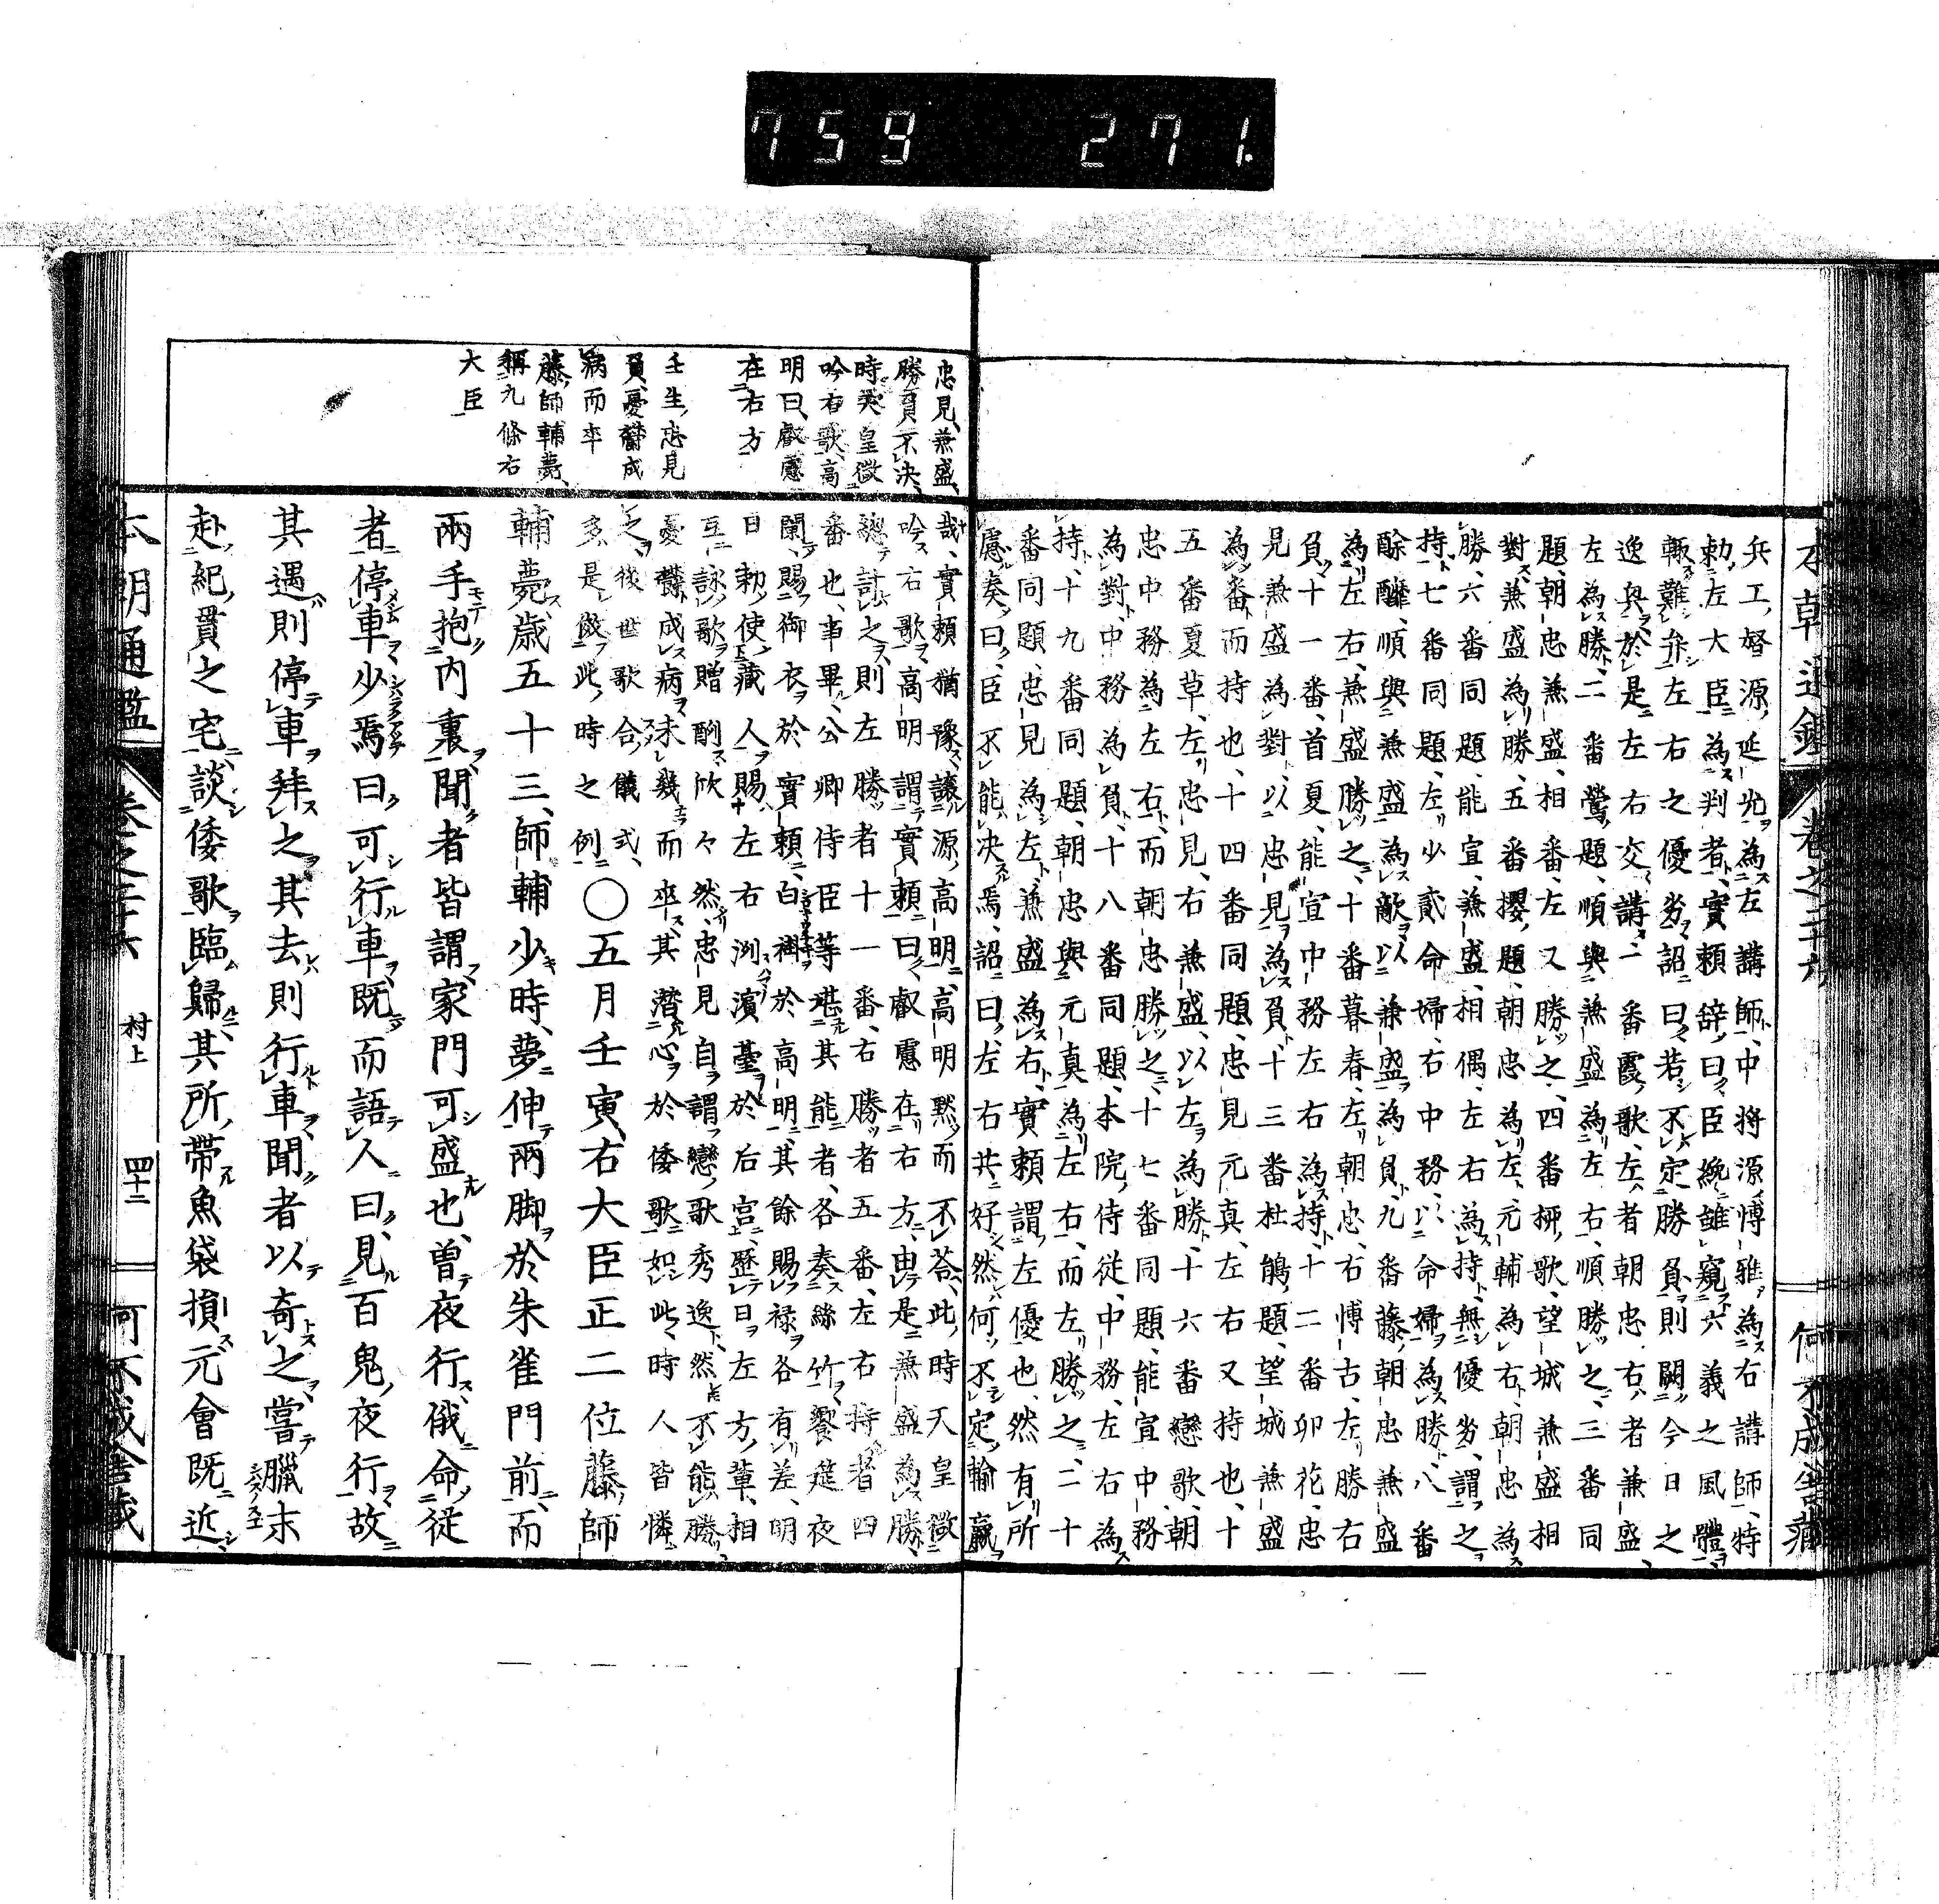 759 271.
本朝通鑑 卷之二十六 何不成舎藏
兵工督源延光為左講師中將源博雅為右講師特
勅左大臣為判者實賴辭曰臣纔雖窺六義之風體
輙難弁左右之優劣詔曰若不定勝負則闕今日之
逸興於是左右交講一番霞歌左者朝忠右者兼盛
左為勝二番鶯題順與兼盛為左右順勝之三番同
題朝忠兼盛相番左又勝之四番柳歌望城兼盛相
對兼盛為勝五番櫻題朝忠為左元輔為右朝忠為
勝六番同題能宣兼盛相偶左右為持無優劣謂之
持七番同題左少貳命婦右中務以命婦為勝八番
酴醾順與兼盛為敵以兼盛為負九番藤朝忠兼盛
為左右兼盛勝之十番暮春左朝忠右博古左勝右
負十一番首夏能宣中務左右為持十二番卯花忠
見兼盛為對以忠見為負十三番杜鵑題望城兼盛
為番而持也十四番同題忠見元真左右又持也十
五番夏草左忠見右兼盛以左為勝十六番戀歌朝
忠中務為左右而朝忠勝之十七番同題能宣中務
為對中務為負十八番同題本院侍從中務左右為
持十九番同題朝忠與元真為左右而左勝之二十
番同題忠見為左兼盛為右實賴謂左優也然有所
慮奏曰臣不能決焉詔曰左右共好然何不定輸贏
忠見兼盛
勝負不決
時天皇微
吟右歌高
明曰叡慮
在右方
壬生忠見
負憂鬱成
病而卒
藤師輔薨
稱九條右
大臣
哉實賴猶豫讓源高明高明默而不荅此時天皇微
吟右歌高明謂實賴曰叡慮在右方由是兼盛為勝
總計之則左勝者十一番右勝者五番左右持者四
番也事畢公卿侍臣等堪其能者各奏絲竹饗筵夜
闌賜御衣於實賴白褂於高明其餘賜祿各有差明
日勅使藏人賜左右洲濱臺於后宮歷日左方輩相
互詠歌贈酬欣々然忠見自謂戀歌秀逸然不能勝
憂欝成病未幾而卒其潜心於倭歌如此時人皆憐
之後世歌合儀式
多是傚此時之例○五月壬寅右大臣正二位藤師
輔薨歲五十三師輔少時夢伸兩脚於朱雀門前而
兩手抱內裏聞者皆謂家門可盛也曾夜行俄命從
者停車少焉曰可行車既而語人曰見百鬼夜行故
其遇則停車拜之其去則行車聞者以奇之嘗臘末
赴紀貫之宅談倭歌臨歸其所帶魚袋損元會既近
本朝通鑑 卷之二十六 村上 四十二 何不成舎藏